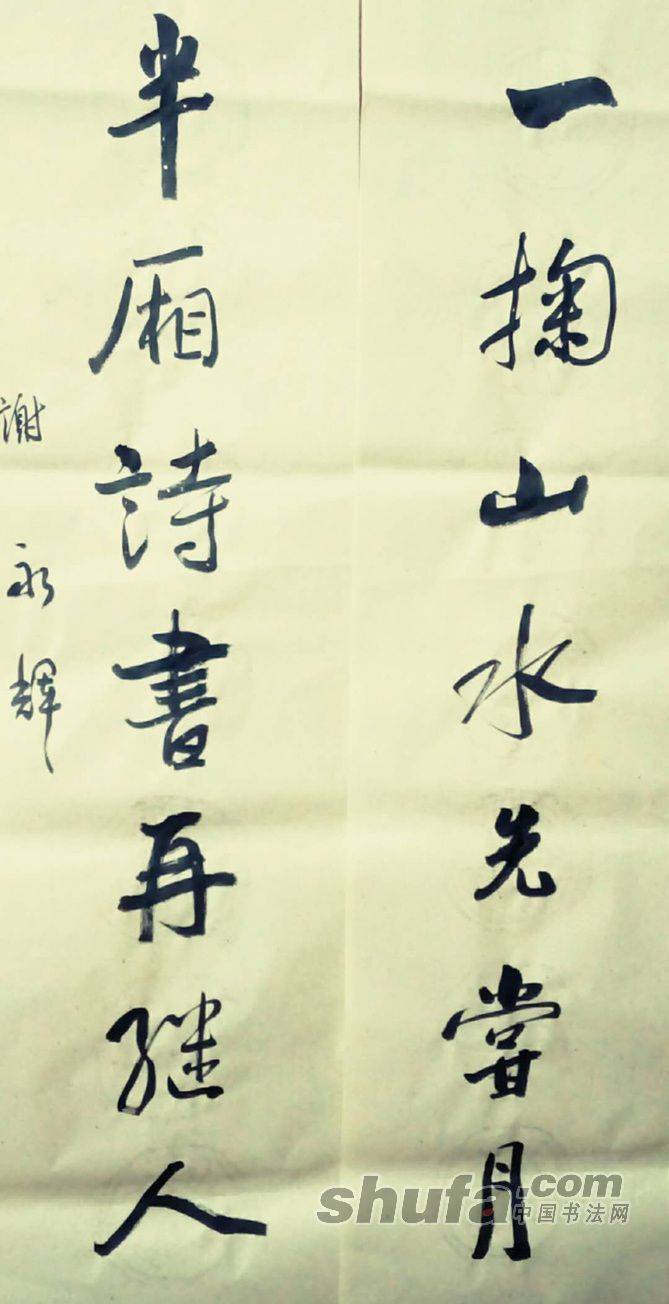 一掬山水先嘗月
半厢詩書再继人
謝永輝
shufa.com
中国书法网